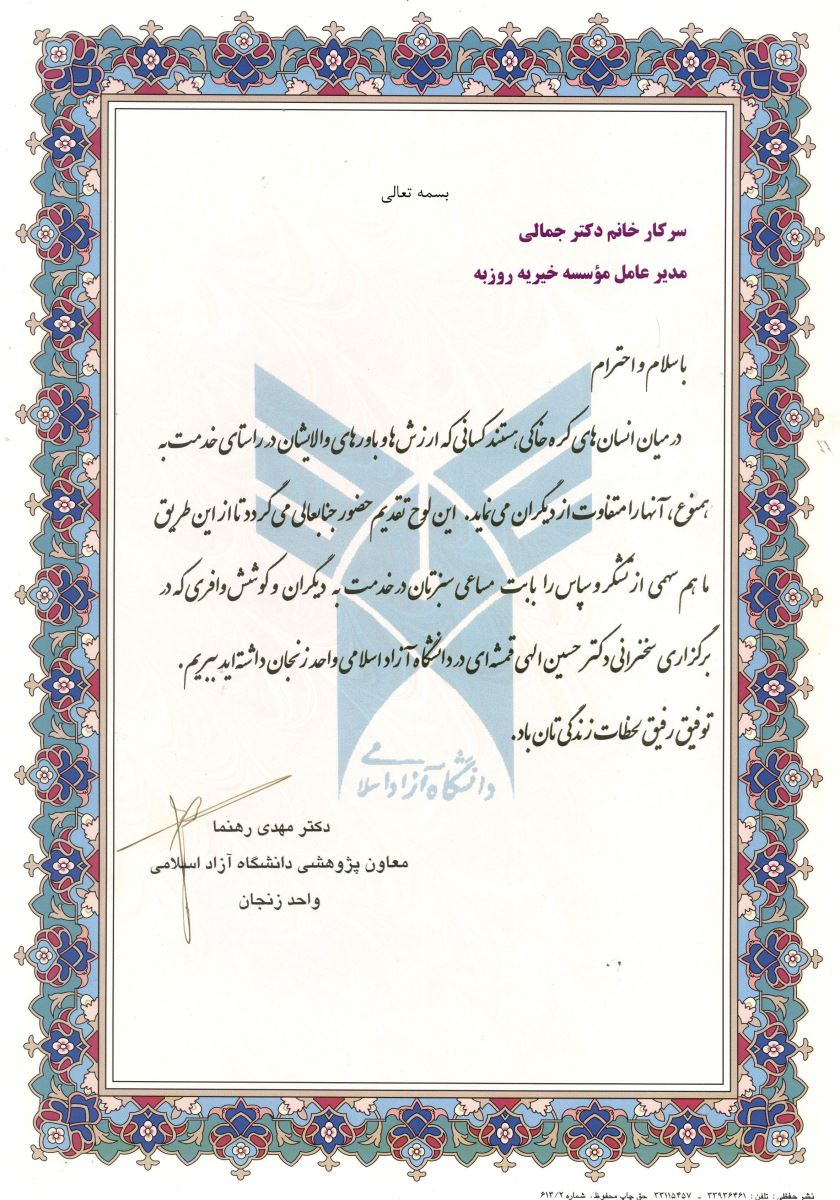 بسمه تعالی
سرکار خانم دکتر جمالی
مدیر عامل مؤسسه خیریه روزبه
با سلام و احترام
در میان انسان های کره خاکی هستند کسانی که ارزش ها و باورهای والایشان در راستای خدمت به
همنوع، آنها را متفاوت از دیگران می نماید. این لوح تقدیم حضور جنابعالی می گردد تا از این طریق
ما هم سهمی از تشکر و سپاس را بابت مساعی سبزتان در خدمت به دیگران و کوشش وافری که در
برگزاری سخنرانی دکتر حسین الهی قمشه ای در دانشگاه آزاد اسلامی واحد زنجان داشته اید ببریم.
توفیق رفیق لحظات زندگی تان باد.
دانشگاه آزاد اسلامی
دکتر مهدی رهنما
معاون پژوهشی دانشگاه آزاد اسلامی
واحد زنجان
نشر حفظی: تلفن: ۳۳۹۳۶۴۶۱ - ۳۳۱۱۵۴۵۷ حق چاپ محفوظ، شماره ۶۱۳/۲